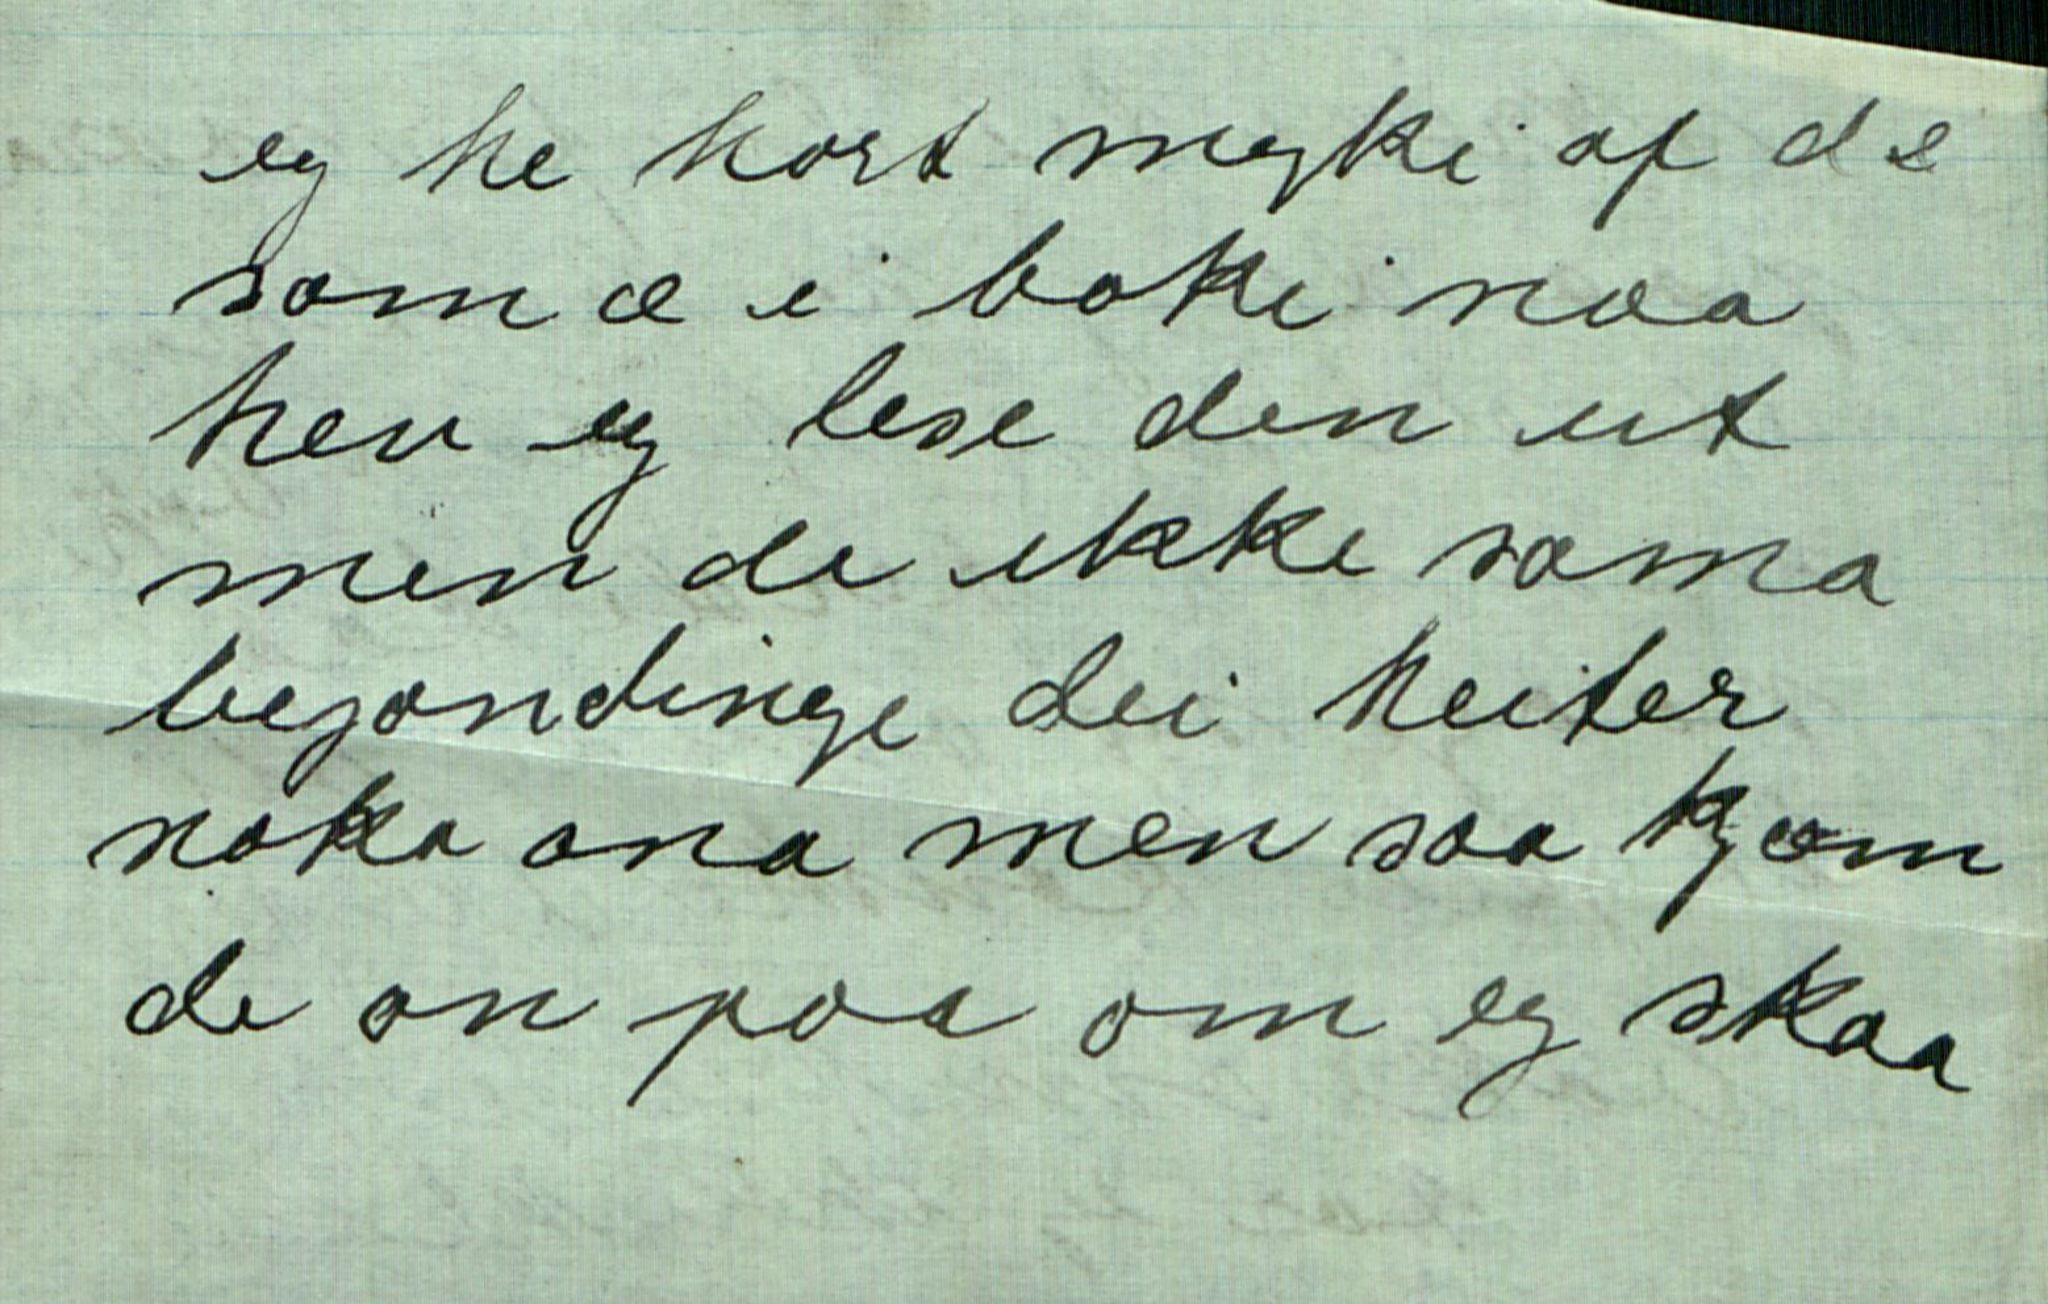 eg he hort myki af de
som æ i boki naa
hev eg lese den ut
men de ikke sama
begondinge dei heiter
noka ana men saa kjom
de an paa om eg skaa